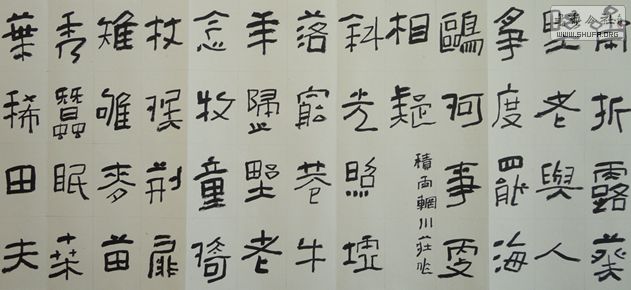 齋折露葵
野老與人
爭席罷海
鷗何事更
相疑
積雨輞川莊作
斜光照墟
落窮巷牛
羊歸野老
念牧童倚
杖候荊扉
雉雊麥苗
秀蠶眠桑
葉稀田夫
WWW.SHUFA.ORG